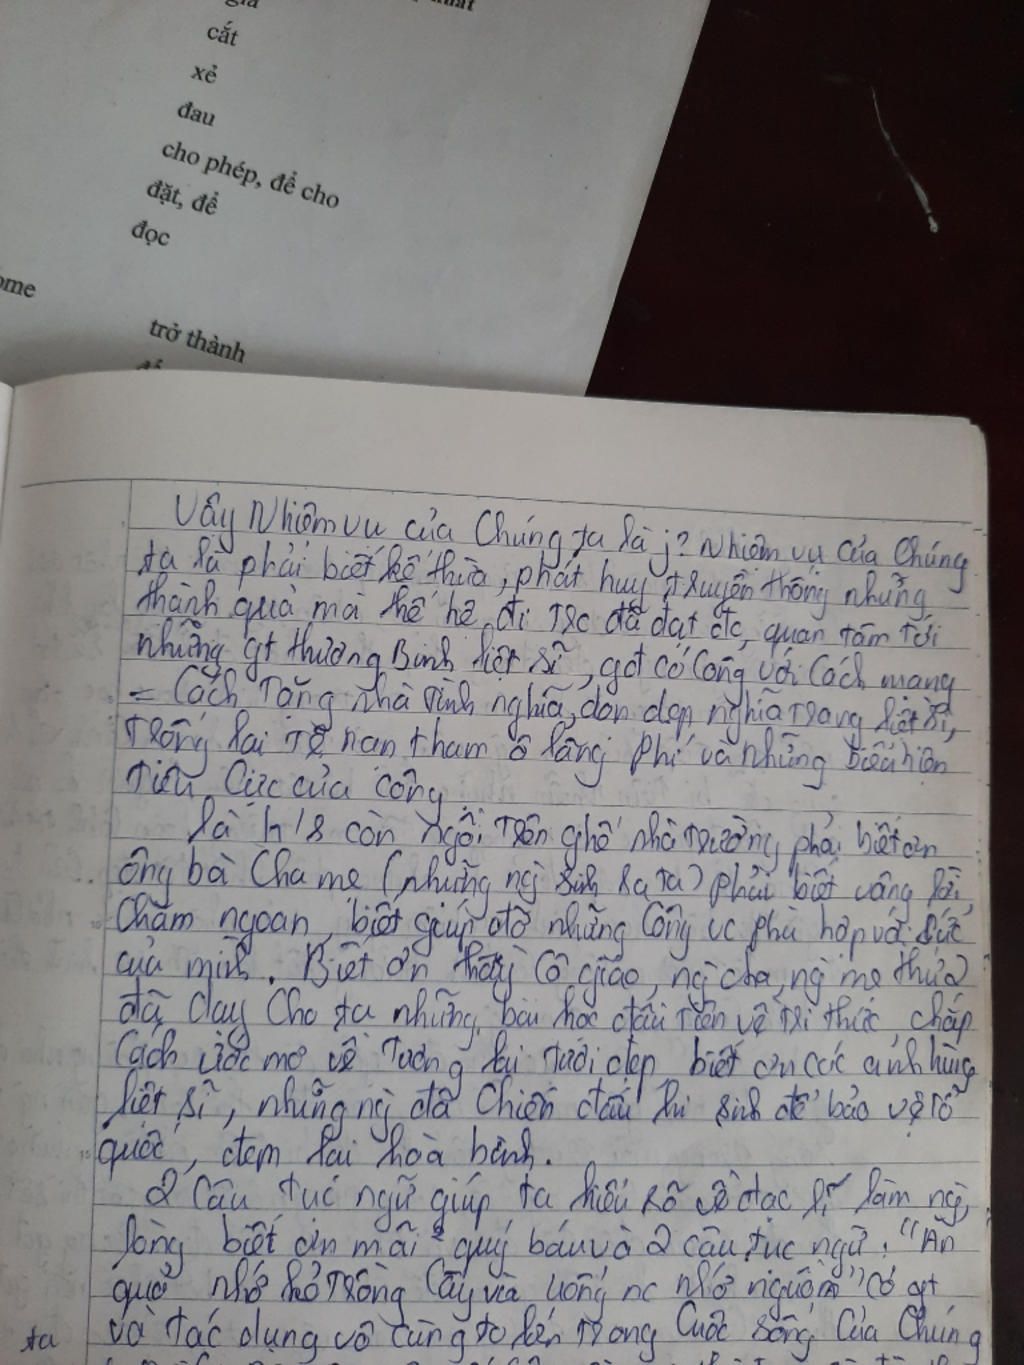 cắt
xẻ
đau
cho phép, để cho
đặt, để
đọc
ome
trở thành
Vậy Nhiệm vụ của Chúng ta là j? Nhiệm vụ của Chúng
ta là phải biết kế thừa, phát huy truyền thống những
thành quả mà thế hệ đi trc đã đạt đc, quan tâm tới
những gt thương Binh liệt sĩ, gđ có Công với Cách mạng
= Cách Tặng nhà tình nghĩa, dọn dẹp nghĩa trang liệt sĩ,
trống lại tệ nạn tham ô lãng phí và những biểu hiện
tiêu cực của công
là h/s còn ngồi trên ghế nhà trường phải biết ơn
ông bà Cha mẹ (những ng sinh ra ta) phải biết vâng lời,
Chăm ngoan, biết giúp đỡ những Công vc phù hợp với sức
của mình. Biết ơn thầy Cô giáo, ng cha, ng mẹ thứ 2
đã dạy Cho ta những bài học đầu tiên về tri thức, chắp
Cách ước mơ về tương lai tươi đẹp biết ơn các anh hùng
liệt sĩ, những ng đã Chiến đấu hi sinh để bảo vệ tổ
quốc, đem lại hoà bình.
2 Câu tục ngữ giúp ta hiểu rõ về đạc lí làm ng,
lòng biết ơn mãi quý báu và 2 câu tục ngữ: "Ăn
quả nhớ kẻ trồng Cây và uống nc nhớ nguồn" có gt
và tác dụng vô cùng to lớn trong Cuộc sống Của Chúng
ta